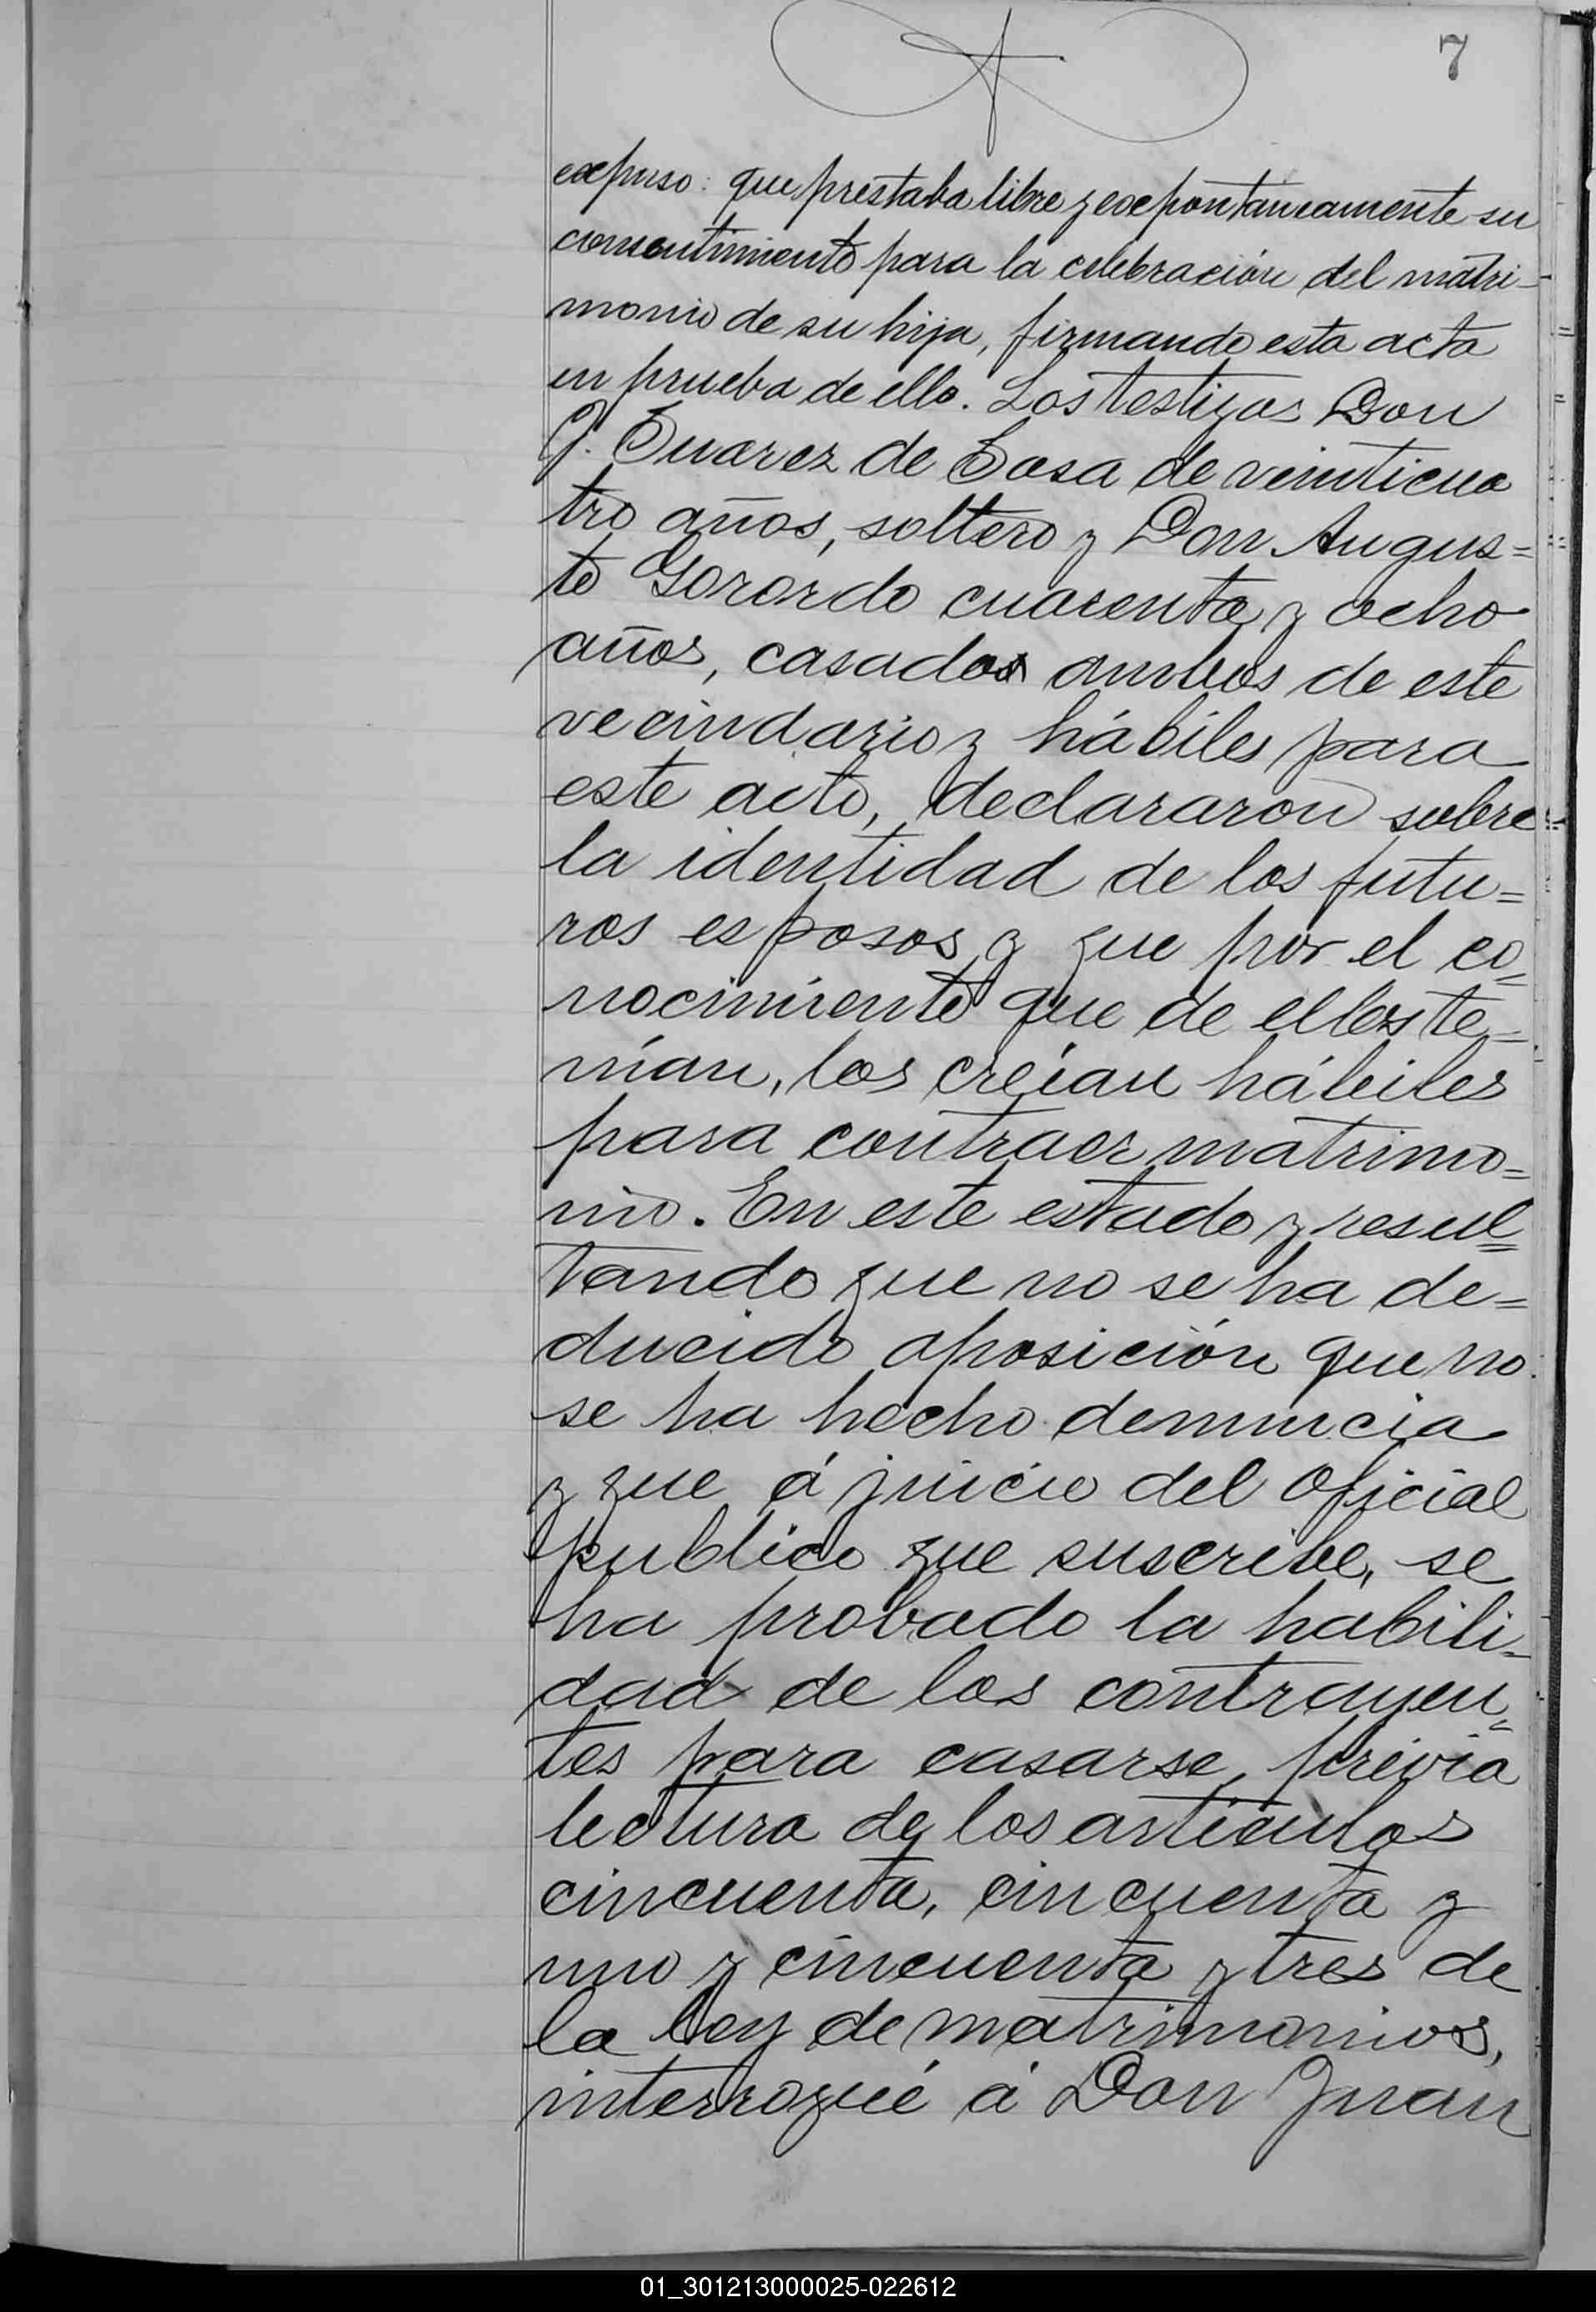 7
expuso: que prestaba libre y expontaneamente su
consentimiento para la celebración del matri-
monio de su hija, firmando esta acta
en prueba de ello. Los testigos Don
J. Suarez de Sosa de veinticua
tro años, soltero y Don Augus=
to Gorordo cuarenta y ocho
años, casados ambos de este
vecindario y hábiles para
este acto, declararon sobre
la identidad de los futu=
ros esposos y que por el co=
nocimiento que de ellos te=
nían, los creían hábiles
para contraer matrimo=
nio. En este estado y resul=
tando que no se ha de=
ducido oposición que no
se ha hecho denuncia
y que á juicio del Oficial
publico que suscribe, se
ha probado la habili-
dad de los contrayen=
tes para casarse, prévia
lectura de los artículos
cincuenta, cincuenta y
uno y cincuenta y tres de
la ley de matrimonios,
interrogué á Don Juan
01_301213000025-022612